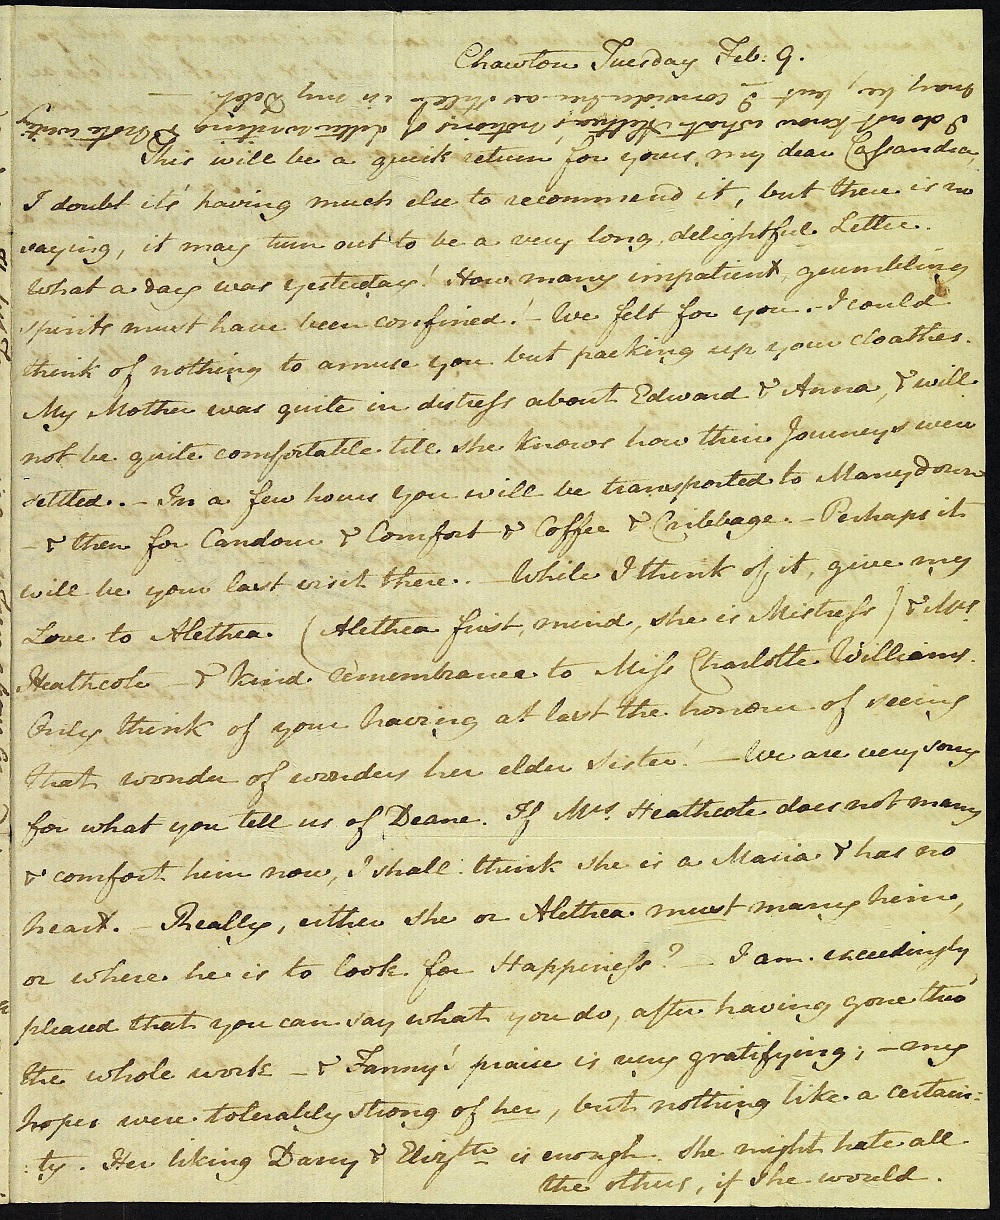 Chawton Tuesday Feb: 9.
I do not know what Alethea's notions of Letter writing & Note writing
may be, but I consider her as still in my Debt. —
This will be a quick return for yours, my dear Cassandra;
I doubt it's having much else to recommend it, but there is no
saying, it may turn out to be a very long, delightful Letter.
What a day was yesterday! How many impatient, grumbling
spirits must have been confined! — We felt for you. — I could
think of nothing to amuse you but packing up your cloathes.
My Mother was quite in distress about Edward & Anna, & will
not be quite comfortable till she knows how their Journeys were
settled. — In a few hours you will be transported to Manydown
— & then for Candour & Comfort & Coffee & Cribbage. — Perhaps it
will be your last visit there. — While I think of it, give my
Love to Alethea (Alethea first, mind, she is Mistress) & Mrs.
Heathcote — & kind remembrance to Miss Charlotte Williams.
Only think of your having at last the honour of seeing
that wonder of wonders her elder Sister! — We are very sorry
for what you tell us of Deane. If Mrs. Heathcote does not marry
& comfort him now, I shall think she is a Maria & has no
heart. — Really, either she or Alethea must marry him,
or where he is to look for Happiness? — I am exceedingly
pleased that you can say what you do, after having gone thro'
the whole work — & Fanny's praise is very gratifying; — my
hopes were tolerably strong of her, but nothing like a certain=
:ty. Her liking Darcy & Elizth. is enough. She might hate all
the others, if she would.